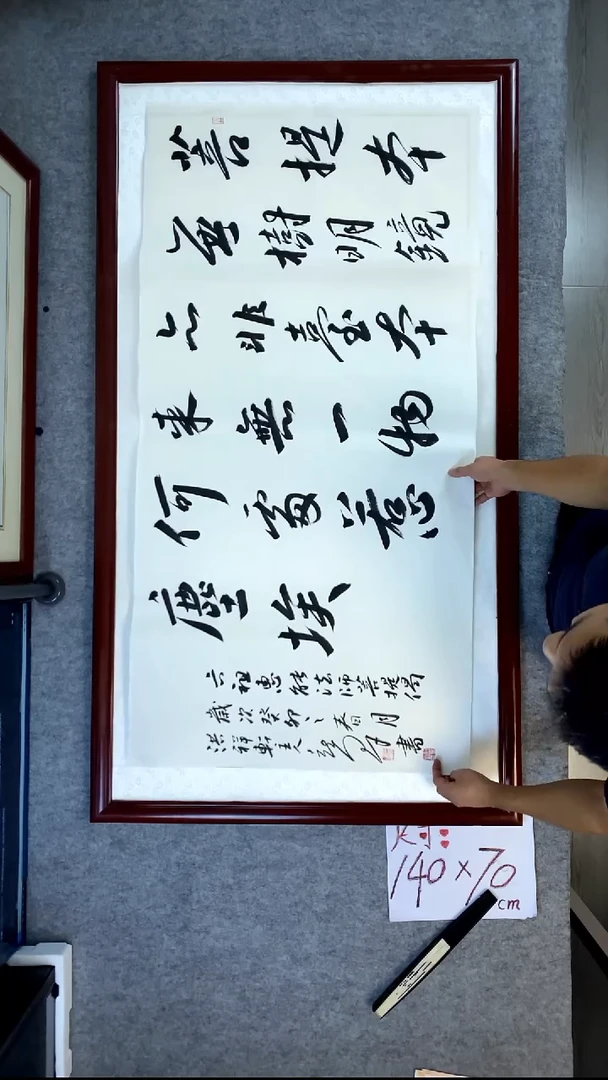 菩提本
無樹明鏡
亦非臺本
来無一物
何處惹
塵埃
六祖惠能法师菩提偈
歲次癸卯之春月
洪祥軒主 書
尺寸:
140×70
cm